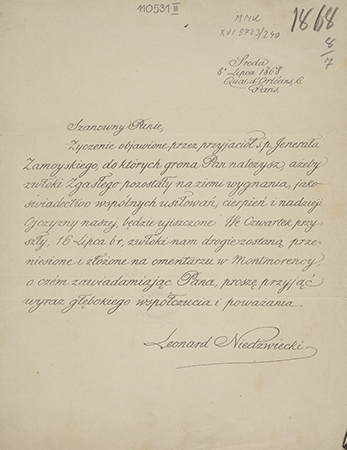 110531 III
MNK
XVI 9723/240
1868
8/7
Środa
8º Lipca 1868
Quai d'Orléans, 6.
Paris.
Szanowny Panie,
Życzenie objawione przez przyjaciół ś.p. Jenerała
Zamoyskiego, do których grona Pan należysz, ażeby
zwłoki Zgasłego pozostały na ziemi wygnania, jako
świadectwo wspólnych usiłowań, cierpień i nadzieji
Ojczyzny naszej, będzie uiszczone. We Czwartek przy-
szły, 16 Lipca br, zwłoki nam drogie zostaną prze-
niesione i złożone na cmentarzu w Montmorency,
o czém zawiadamiając Pana, proszę przyjąć
wyraz głębokiego współczucia i poważania.
Leonard Niedźwiecki